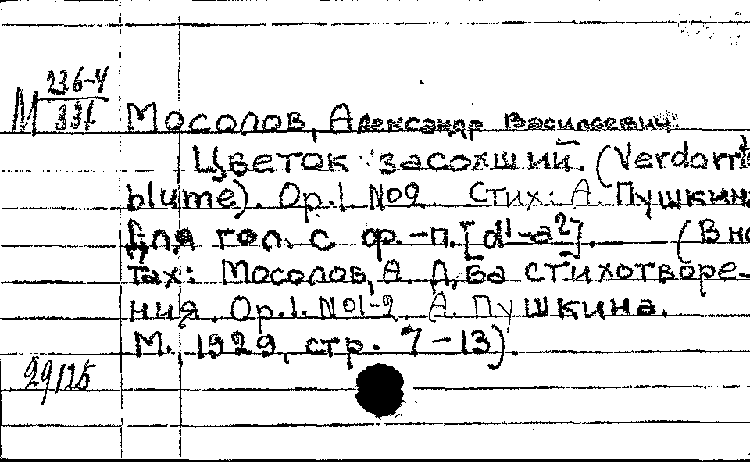 М 236-4
331
Мосолов, Александр Васильевич
Цветок засохший. (Verdorrte
blume). Op.1 №2 Стих: А. Пушкина
Для гол. с ф.-п. [d¹-a²]. (В но
тах: Мосолов, А. Два стихотворе-
ния. Op.1. №1-2. А. Пушкина.
М., 1929, стр. 7-13).
29/125